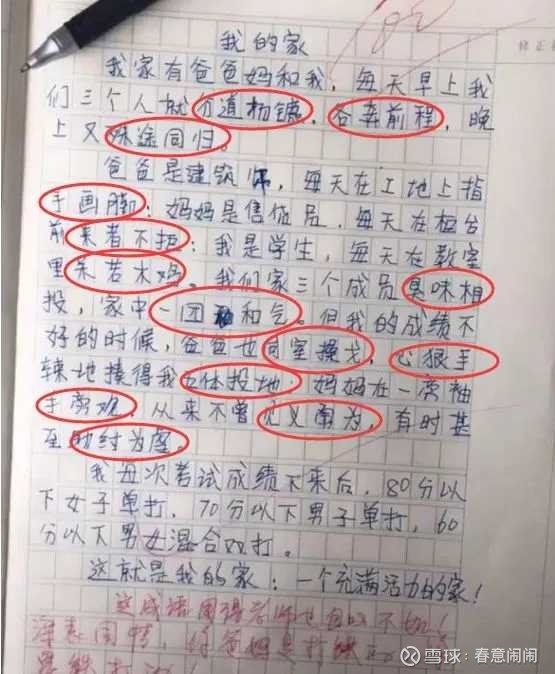 我的家
修正
我家有爸爸妈和我，每天早上我
们三个人就分道杨镳，各奔前程，晚
上又殊途同归。
爸爸是建筑师，每天在工地上指
手画脚；妈妈是售货员，每天在柜台
前来者不拒；我是学生，每天在教室
里呆若木鸡。我们家三个成员臭味相
投，家中一团和气。但我的成绩不
好的时候，爸爸也同室操戈，心狠手
辣地揍得我五体投地。妈妈在一旁袖
手旁观，从来不曾见义勇为，有时甚
至助纣为虐。
我每次考试成绩下来后，80分以
下女子单打，70分以下男子单打，60
分以下男女混合双打。
这就是我的家：一个充满活力的家！
这成语用得老师也自叹不如！
深表同情，你爸妈是打
雪球：春意闹闹